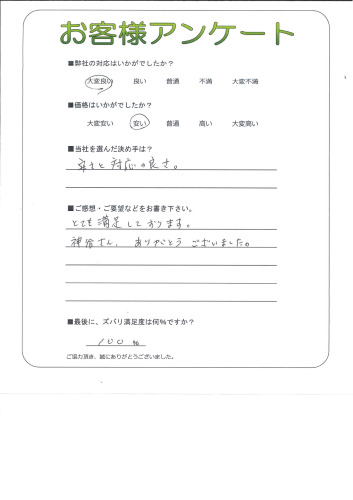 お客様アンケート
■弊社の対応はいかがでしたか？
大変良い 良い 普通 不満 大変不満
■価格はいかがでしたか？
大変安い 安い 普通 高い 大変高い
■当社を選んだ決め手は？
安さと対応の良さ。
■ご感想・ご要望などをお書き下さい。
とても満足しております。
さん、ありがとうございました。
■最後に、ズバリ満足度は何％ですか？
100％
ご協力頂き、誠にありがとうございました。